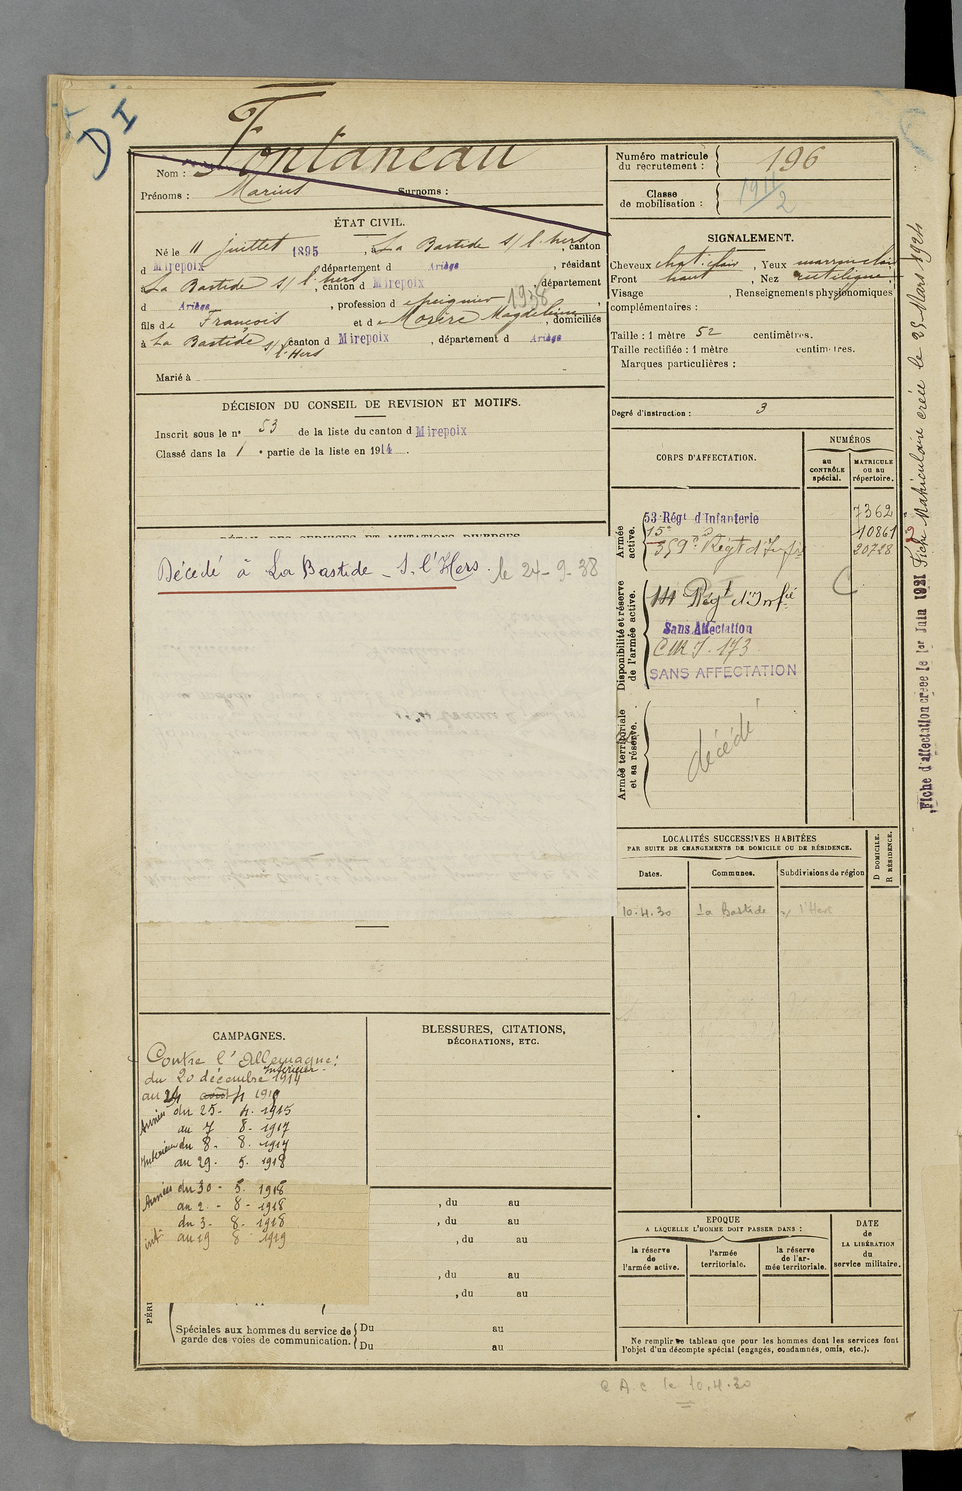 D I
Nom : Fontaneau
Prénoms : Marius Surnoms :
Numéro matricule du recrutement : 196
Classe de mobilisation : 1911/2
ÉTAT CIVIL.
Né le 11 juillet 1895, à La Bastide s/ l'hers, canton
d Mirepoix, département d Ariège, résidant
à La Bastide s/ l'hers, canton d Mirepoix, département
d Ariège, profession d épicier 1938,
fils de François et de Morère Magdeleine, domiciliés
à La Bastide s/ l'Hers, canton d Mirepoix, département d Ariège
Marié à
SIGNALEMENT.
Cheveux chat. clair, Yeux marron clair
Front haut, Nez rectiligne,
Visage , Renseignements physionomiques
complémentaires :
Taille : 1 mètre 52 centimètres.
Taille rectifiée : 1 mètre centimètres.
Marques particulières :
Degré d'instruction : 3
DÉCISION DU CONSEIL DE REVISION ET MOTIFS.
Inscrit sous le n° 53 de la liste du canton d Mirepoix
Classé dans la 1 e partie de la liste en 1914.
DÉTAIL DES SERVICES ET MUTATIONS DIVERSES
Décédé à La Bastide - S. l'Hers. le 24-9-38
CORPS D'AFFECTATION.
NUMÉROS
au CONTRÔLE spécial.
MATRICULE OU AU répertoire.
Armée active.
53 Régt d'Infanterie 7362
15° 10861
359° Régt d'Infie 20728
Disponibilité et réserve de l'armée active.
14 Régt d'Infie
Sans Affectation
C M J. 173
SANS AFFECTATION
Armée territoriale et sa réserve.
décédé
LOCALITÉS SUCCESSIVES HABITÉES
PAR SUITE DE CHANGEMENTS DE DOMICILE OU DE RÉSIDENCE.
Dates. Communes. Subdivisions de région
D DOMICILE. R RÉSIDENCE.
10.4.30 La Bastide s/ l'Hers
CAMPAGNES.
Contre l'Allemagne :
Intérieur
du 20 décembre 1914
au 24 août 4 1915
Armées du 25- 4. 1915
au 7 8- 1917
Intérieur du 8- 8. 1917
au 29. 5. 1918
Armées du 30- 5. 1918
au 2- 8- 1918
du 3- 8- 1918
int au 19 8 1919
BLESSURES, CITATIONS,
DÉCORATIONS, ETC.
, du au
, du au
, du au
, du au
, du au
PÉRI
Spéciales aux hommes du service de garde des voies de communication. Du au
Du au
EPOQUE
A LAQUELLE L'HOMME DOIT PASSER DANS :
la réserve de l'armée active.
l'armée territoriale.
la réserve de l'armée territoriale.
DATE de LA LIBÉRATION du service militaire.
Ne remplir ce tableau que pour les hommes dont les services font
l'objet d'un décompte spécial (engagés, condamnés, omis, etc.).
A.c le 10.4.30
Fiche d'affectation créée le 1er Juin 1921
Fiche Matriculaire créée le 25 Mars 1924